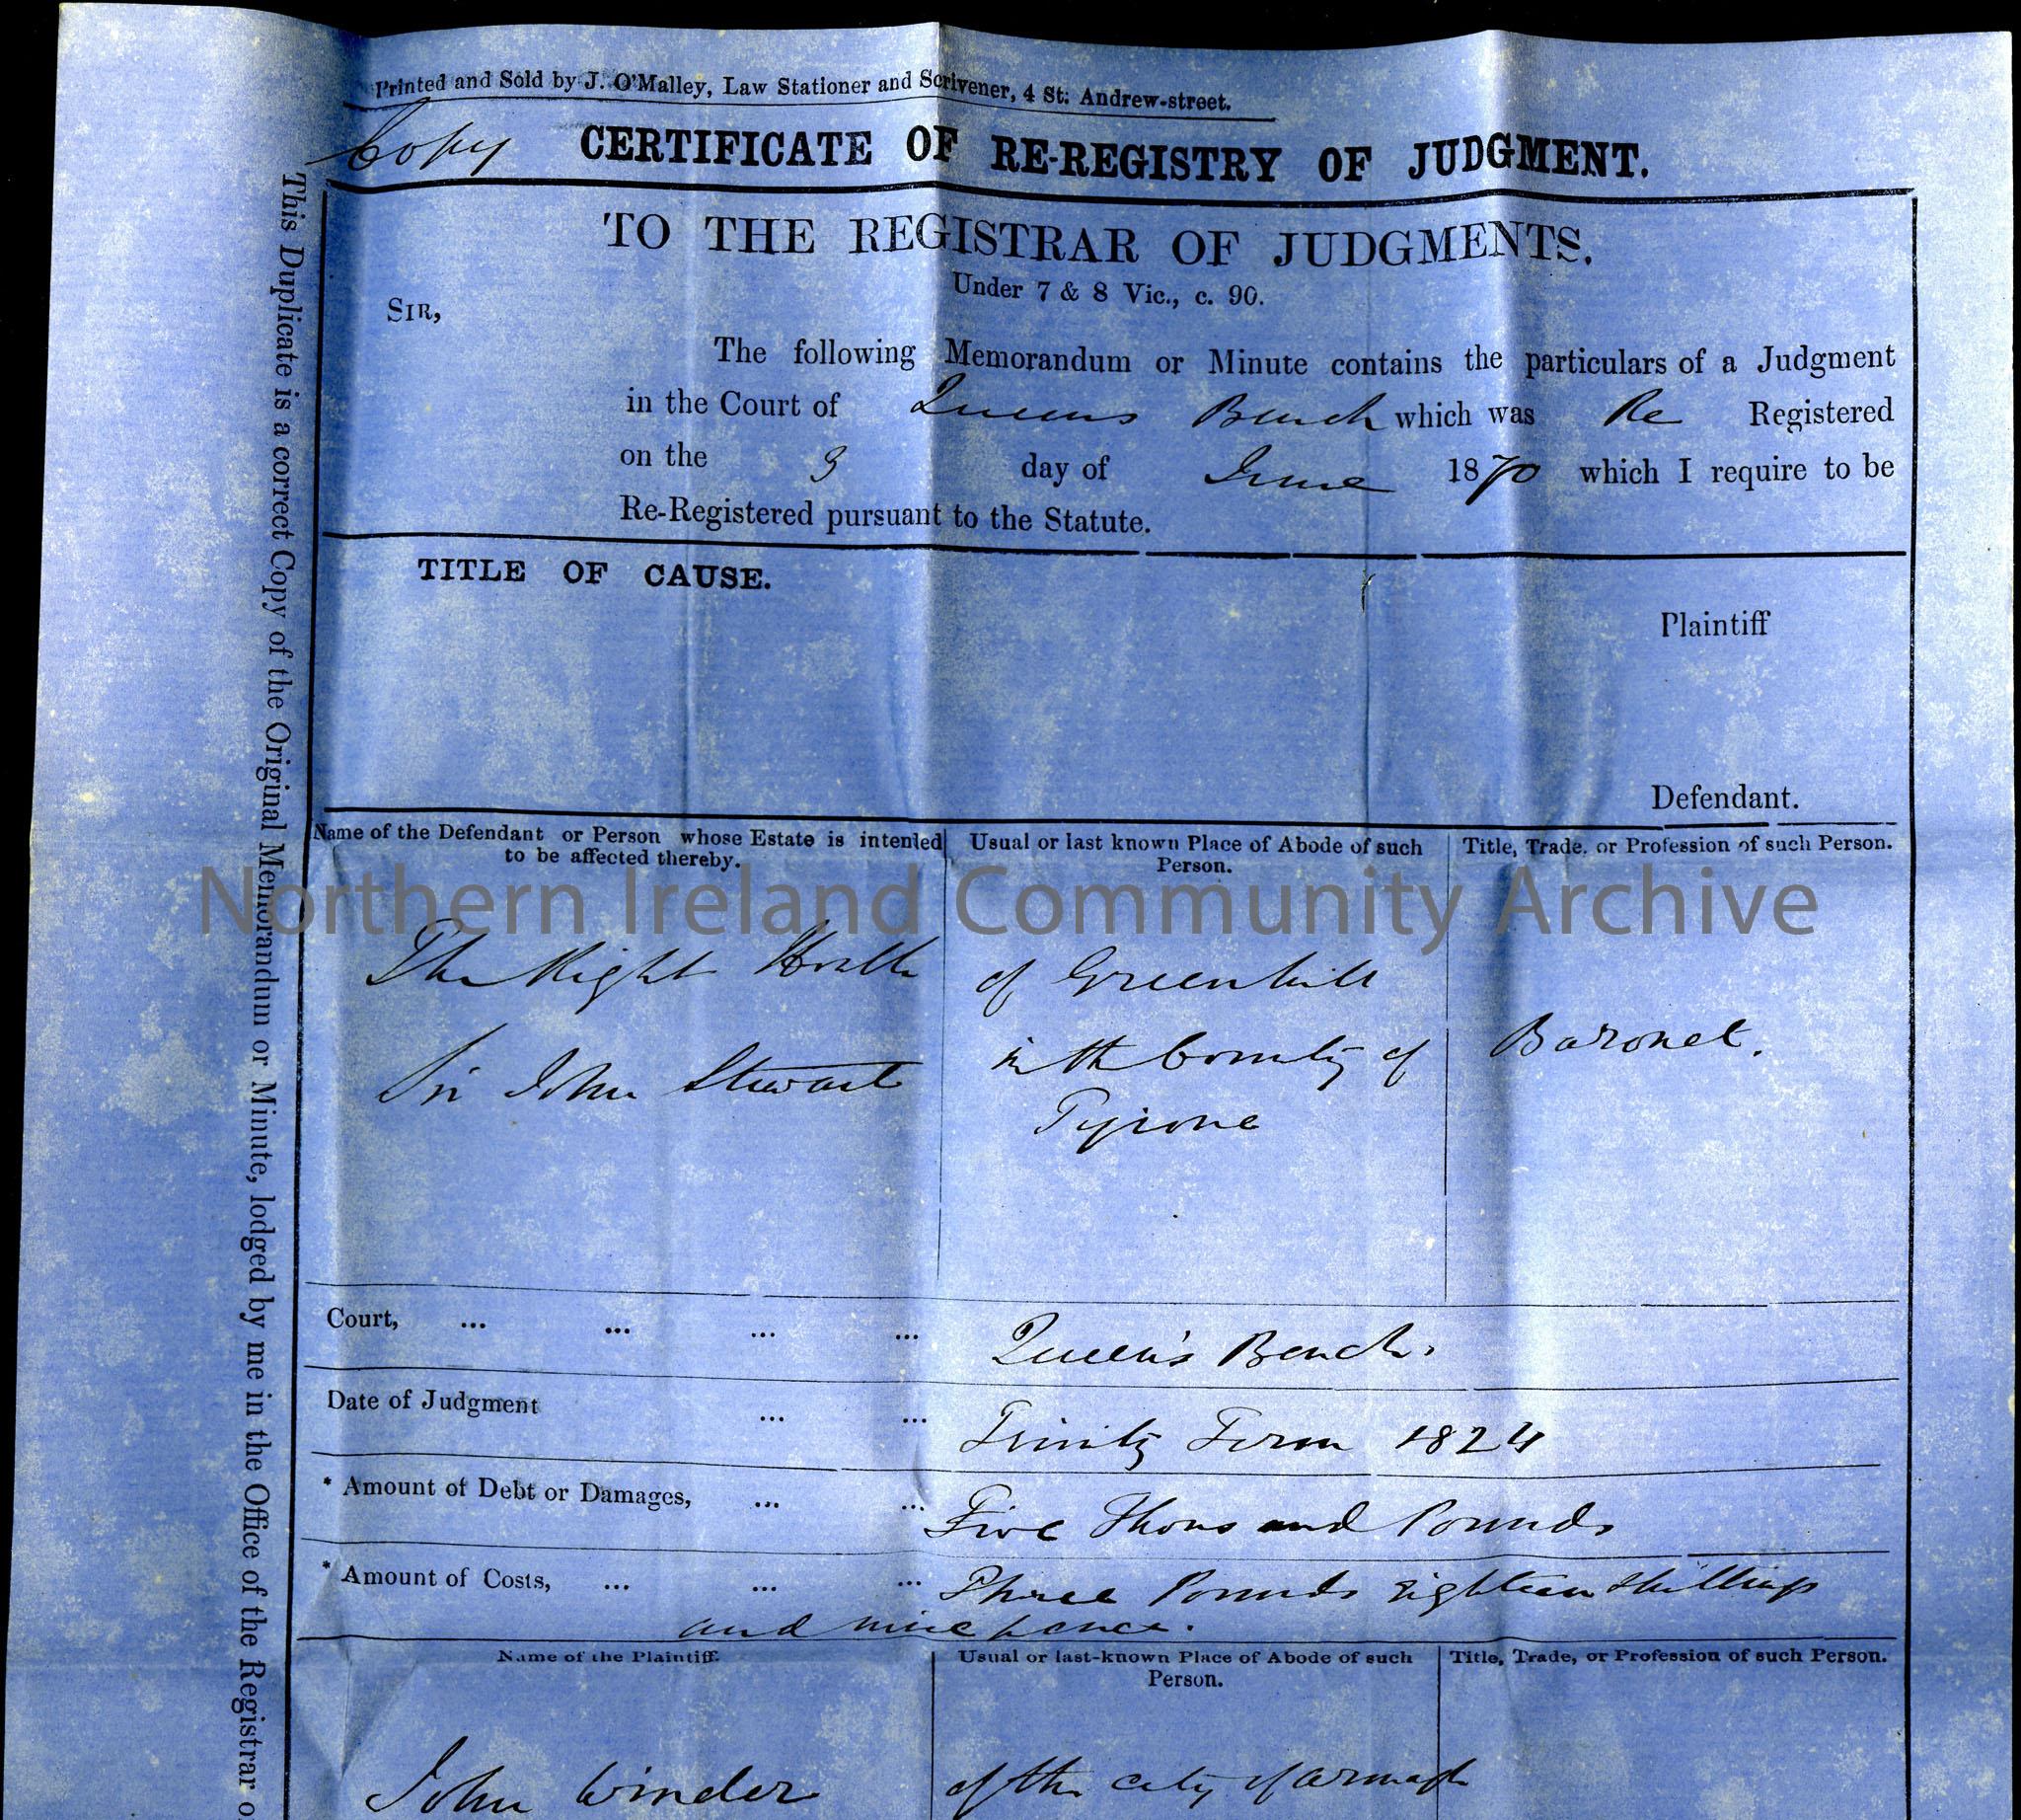 Printed and Sold by J. O'Malley, Law Stationer and Scrivener, 4 St. Andrew-street.
Copy CERTIFICATE OF RE-REGISTRY OF JUDGMENT.
TO THE REGISTRAR OF JUDGMENTS.
Under 7 & 8 Vic., c. 90.
SIR,
The following Memorandum or Minute contains the particulars of a Judgment
in the Court of Queens Bench which was Re Registered
on the 3 day of June 1870 which I require to be
Re-Registered pursuant to the Statute.
TITLE OF CAUSE.
Plaintiff
Defendant.
Name of the Defendant or Person whose Estate is intended
to be affected thereby.
Usual or last known Place of Abode of such
Person.
Title, Trade, or Profession of such Person.
Northern Ireland Community Archive
The Right Honble
Sir John Stewart
of Greenhill
in the County of
Tyrone
Baronet.
Court, ... ... ... ... Queen's Bench.
Date of Judgment ... ... Trinity Term 1824
* Amount of Debt or Damages, ... ... Five Thousand Pounds
* Amount of Costs, ... ... ... Three Pounds Eighteen Shillings
and nine pence.
Name of the Plaintiff.
Usual or last-known Place of Abode of such
Person.
Title, Trade, or Profession of such Person.
John Winder
of the City of Armagh
This Duplicate is a correct Copy of the Original Memorandum or Minute, lodged by me in the Office of the Registrar o